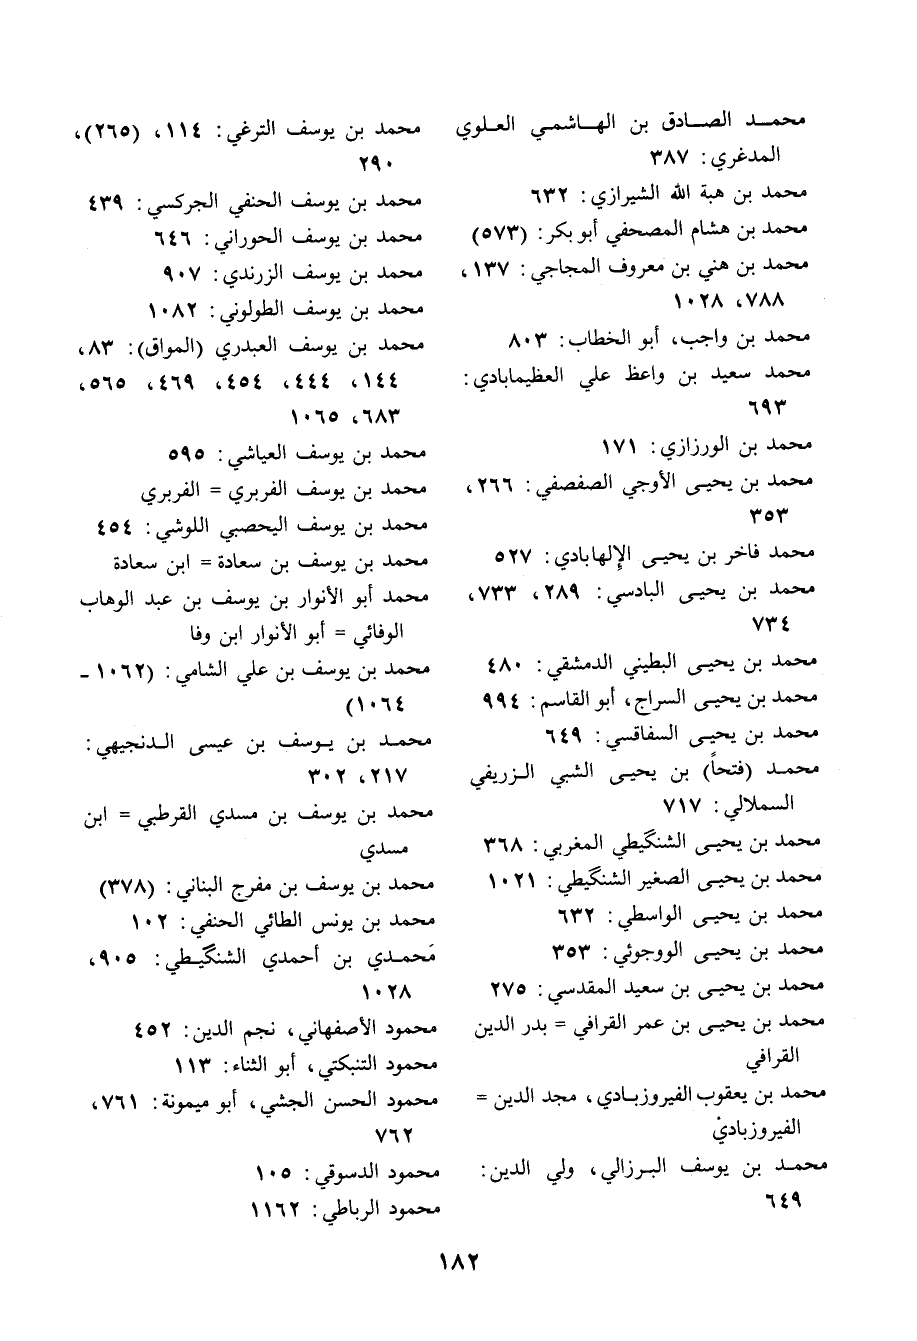 محمد الصادق بن الهاشمي العلوي
المدغري: ٣٨٧
محمد بن هبة الله الشيرازي: ٦٣٢
محمد بن هشام المصحفي أبو بكر: (٥٧٣)
محمد بن هني بن معروف المجاجي: ١٣٧،
٧٨٨، ١٠٢٨
محمد بن واجب، أبو الخطاب: ٨٠٣
محمد سعيد بن واعظ علي العظيمابادي:
٦٩٣
محمد بن الورزازي: ١٧١
محمد بن يحيى الأوجي الصفصفي: ٢٦٦،
٣٥٣
محمد فاخر بن يحيى الإلهابادي: ٥٢٧
محمد بن يحيى البادسي: ٢٨٩، ٧٣٣،
٧٣٤
محمد بن يحيى البطيني الدمشقي: ٤٨٠
محمد بن يحيى السراج، أبو القاسم: ٩٩٤
محمد بن يحيى السفاقسي: ٦٤٩
محمد (فتحاً) بن يحيى الشبي الزريفي
السملالي: ٧١٧
محمد بن يحيى الشنگيطي المغربي: ٣٦٨
محمد بن يحيى الصغير الشنگيطي: ١٠٢١
محمد بن يحيى الواسطي: ٦٣٢
محمد بن يحيى الووجوثي: ٣٥٣
محمد بن يحيى بن سعيد المقدسي: ٢٧٥
محمد بن يحيى بن عمر القرافي = بدر الدين
القرافي
محمد بن يعقوب الفيروزبادي، مجد الدين =
الفيروزبادي
محمد بن يوسف البرزالي، ولي الدين:
٦٤٩
محمد بن يوسف الترغي: ١١٤، (٢٦٥)،
٢٩٠
محمد بن يوسف الحنفي الجركسي: ٤٣٩
محمد بن يوسف الحوراني: ٦٤٦
محمد بن يوسف الزرندي: ٩٠٧
محمد بن يوسف الطولوني: ١٠٨٢
محمد بن يوسف العبدري (المواق): ٨٣،
١٤٤، ٤٤٤، ٤٥٤، ٤٦٩، ٥٦٥،
٦٨٣، ١٠٦٥
محمد بن يوسف العياشي: ٥٩٥
محمد بن يوسف الفربري = الفربري
محمد بن يوسف اليحصبي اللوشي: ٤٥٤
محمد بن يوسف بن سعادة = ابن سعادة
محمد أبو الأنوار بن يوسف بن عبد الوهاب
الوفائي = أبو الأنوار ابن وفا
محمد بن يوسف بن علي الشامي: (١٠٦٢ -
١٠٦٤)
محمد بن يوسف بن عيسى الدنجيهي:
٢١٧، ٣٠٢
محمد بن يوسف بن مسدي القرطبي = ابن
مسدي
محمد بن يوسف بن مفرج البناني: (٣٧٨)
محمد بن يونس الطائي الحنفي: ١٠٢
مَحمدي بن أحمدي الشنگيطي: ٩٠٥،
١٠٢٨
محمود الأصفهاني، نجم الدين: ٤٥٢
محمود التنبكتي، أبو الثناء: ١١٣
محمود الحسن الجشي، أبو ميمونة: ٧٦١،
٧٦٢
محمود الدسوقي: ١٠٥
محمود الرباطي: ١١٦٢
١٨٢